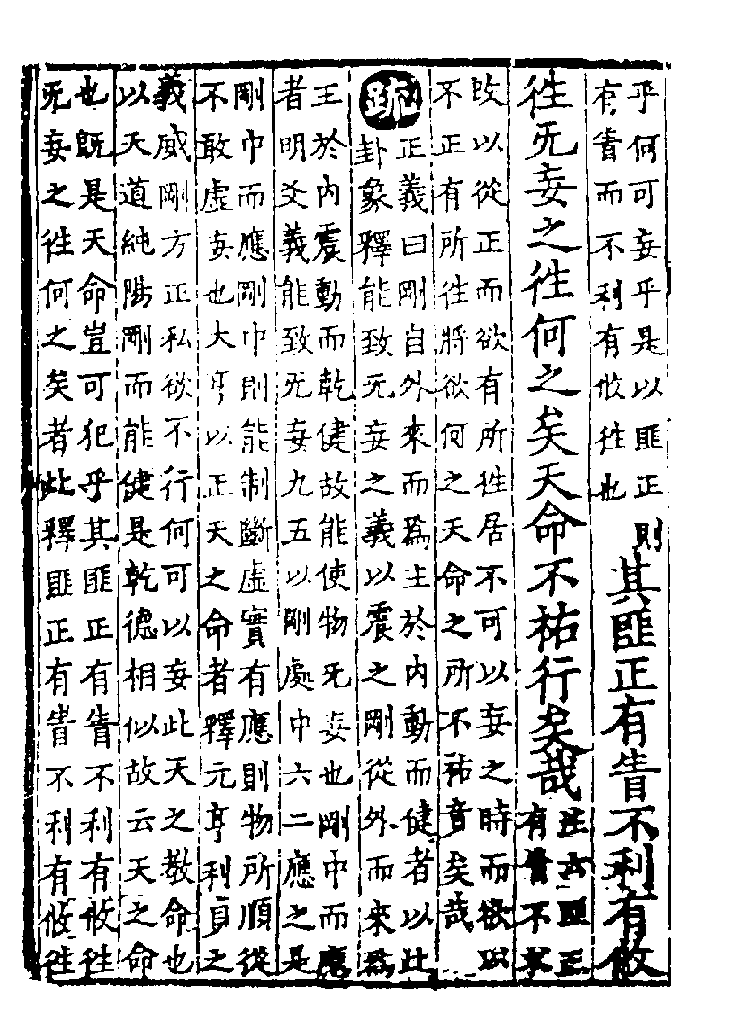 乎何可妄乎是以匪正則
有眚而不利有攸往也
其匪正有眚不利有攸
往无妄之往何之矣天命不祐行矣哉
注云匪正
有眚不求
改以從正而欲有所往居不可以妄之時而欲以
不正有所往將欲何之天命之所不祐竟矣哉
疏
正義曰剛自外來而為主於內動而健者以此
卦象釋能致无妄之義以震之剛從外而來為
王於內震動而乾健故能使物无妄也剛中而應
者明爻義能致无妄九五以剛處中六二應之是
剛中而應剛中則能制斷虛實有應則物所順從
不敢虛妄也大亨以正天之命者釋元亨利貞之
義威剛方正私欲不行何可以妄此天之敎命也
以天道純陽剛而能健是乾德相似故云天之命
也旣是天命豈可犯乎其匪正有眚不利有攸往
无妄之往何之矣者此釋匪正有眚不利有攸往